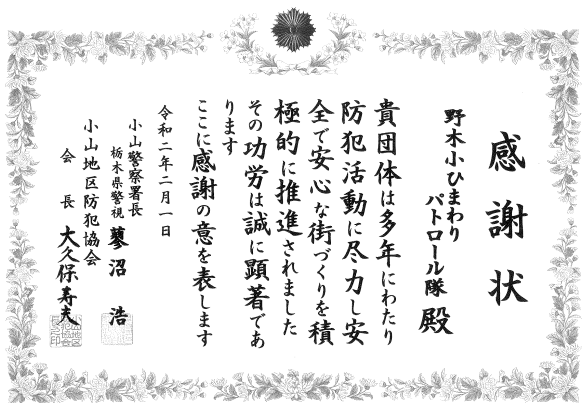 感謝状
野木小ひまわり
パトロール隊 殿
貴団体は多年にわたり
防犯活動に尽力し安
全で安心な街づくりを積
極的に推進されました
その功労は誠に顕著であ
ります
ここに感謝の意を表します
令和二年二月一日
小山警察署長
栃木県警視 蓼沼 浩
小山地区防犯協会
会長 大久保寿夫